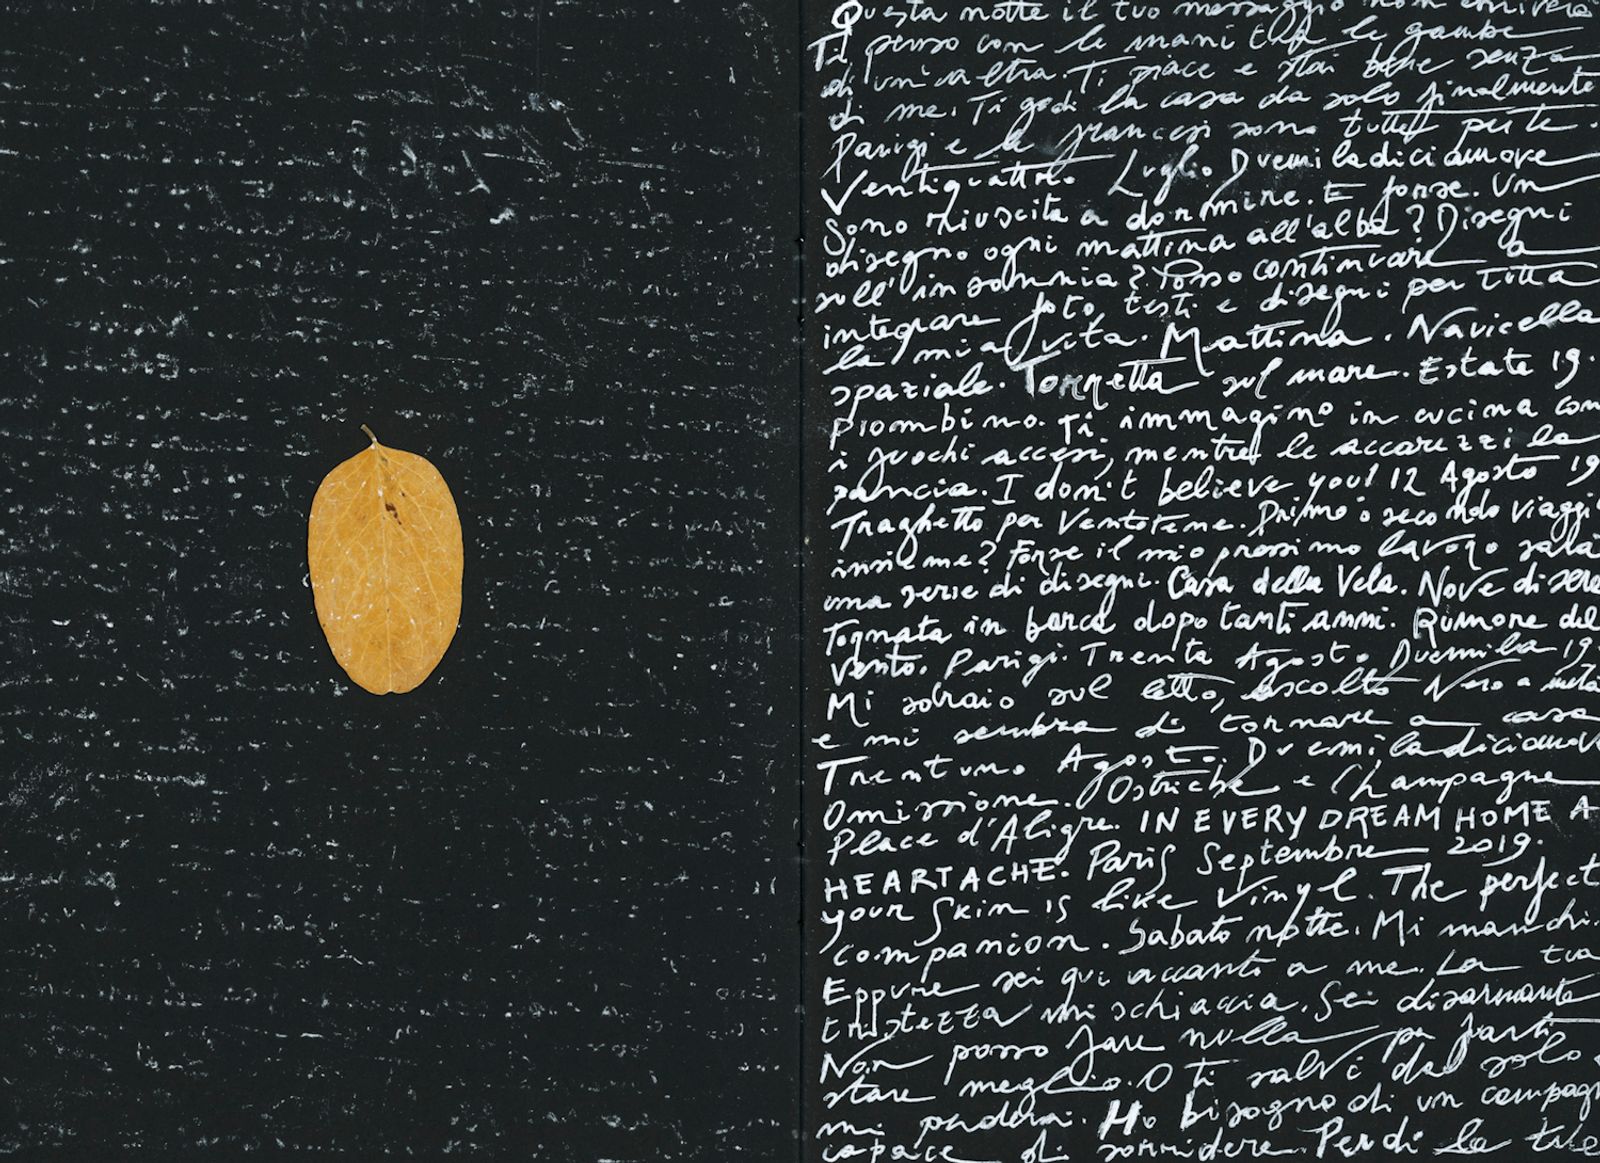 Questa notte il tuo messaggio non arriverà
Ti penso con le mani tra le gambe
di un'altra. Ti piace e stai bene senza
di me. Ti godi la casa da solo finalmente
Parigi e le francesi sono tutte per te.
Ventiquattro Luglio Duemiladiciannove
Sono riuscita a dormire. E forse. Un
disegno ogni mattina all'alba? Disegni
sull'insonnia? Posso continuare a
integrare foto, testi e disegni per tutta
la mia vita. Mattina. Navicella
spaziale. Torretta sul mare. Estate 19.
Piombino. Ti immagino in cucina con
i fuochi accesi, mentre le accarezzi la
pancia. I don't believe you! 12 Agosto 19
Traghetto per Ventotene. Primo o secondo viaggio
insieme? Forse il mio prossimo lavoro sarà
una serie di disegni. Casa della Vela. Nove di sera
Tornata in barca dopo tanti anni. Rumore del
vento. Parigi. Trenta Agosto Duemila 19.
Mi sdraio sul letto, ascolto Nero a metà
e mi sembra di tornare a casa
Trentuno Agosto. Duemiladiciannove
Omissione. Ostriche e Champagne
Place d'Aligre. IN EVERY DREAM HOME A
HEARTACHE. Paris Septembre 2019.
your skin is like vinyl. The perfect
companion. Sabato notte. Mi manchi.
Eppure sei qui accanto a me. La tua
tristezza mi schiaccia. Sei disarmante
Non posso fare nulla per farti
stare meglio. O ti salvi da solo o
mi perderai. Ho bisogno di un compagno
capace di sorridere. Perdi la tua